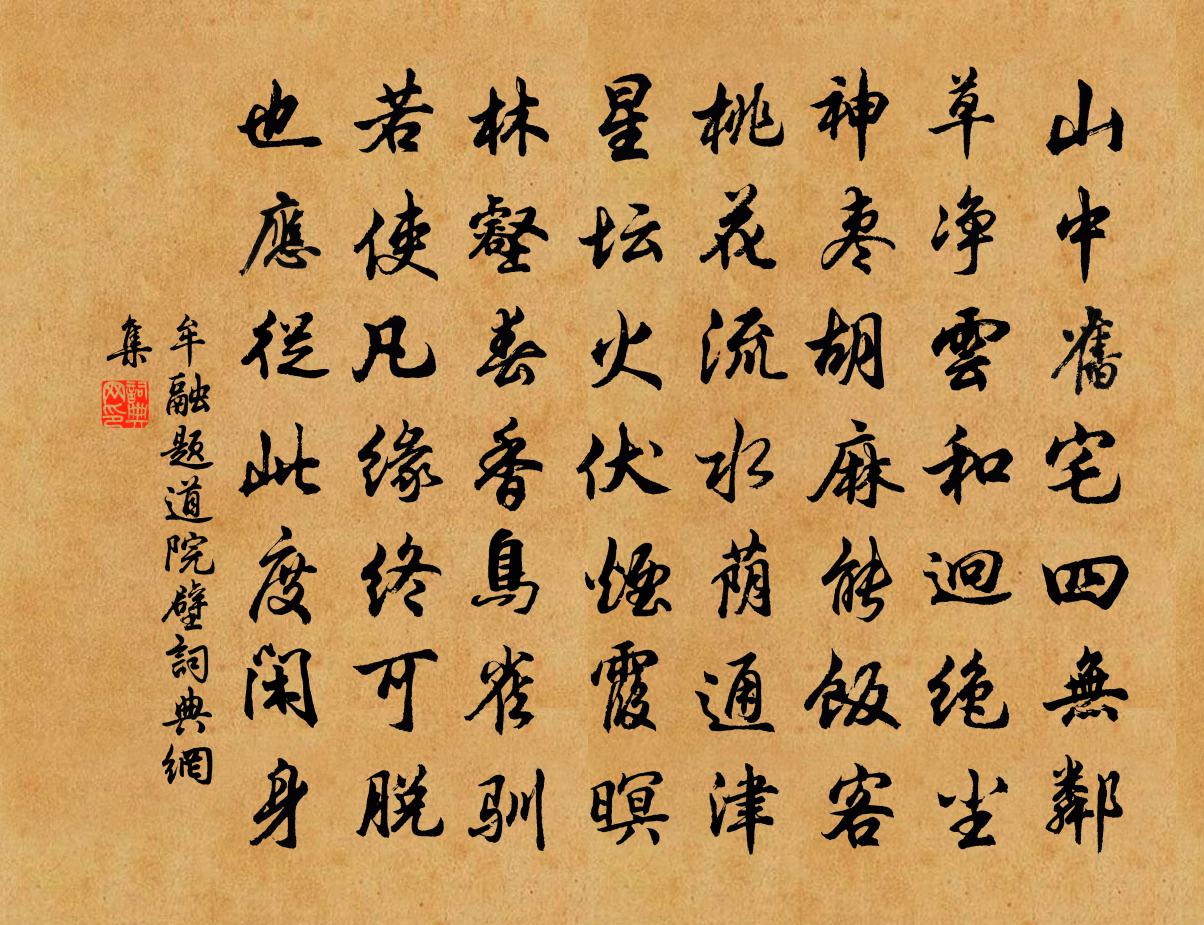 山中舊宅四無鄰
草净雲和迥绝尘
神枣胡麻能飯客
桃花流水荫通津
星坛火伏煙霞暝
林壑春香鳥雀驯
若使凡缘终可脱
也應從此度闲身
牟融题道院壁詞典網
集
詞典网印